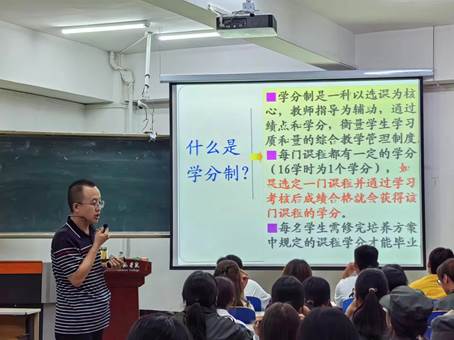 什么是
学分制？
■学分制是一种以选课为核
心，教师指导为辅助，通过
绩点和学分，衡量学生学习
质和量的综合教学管理制度
■每门课程都有一定的学分
（16学时为1个学分），如
果选定一门课程并通过学习
考核后成绩合格就会获得该
门课程的学分。
■每名学生需修完培养方案
中规定的课程学分才能毕业